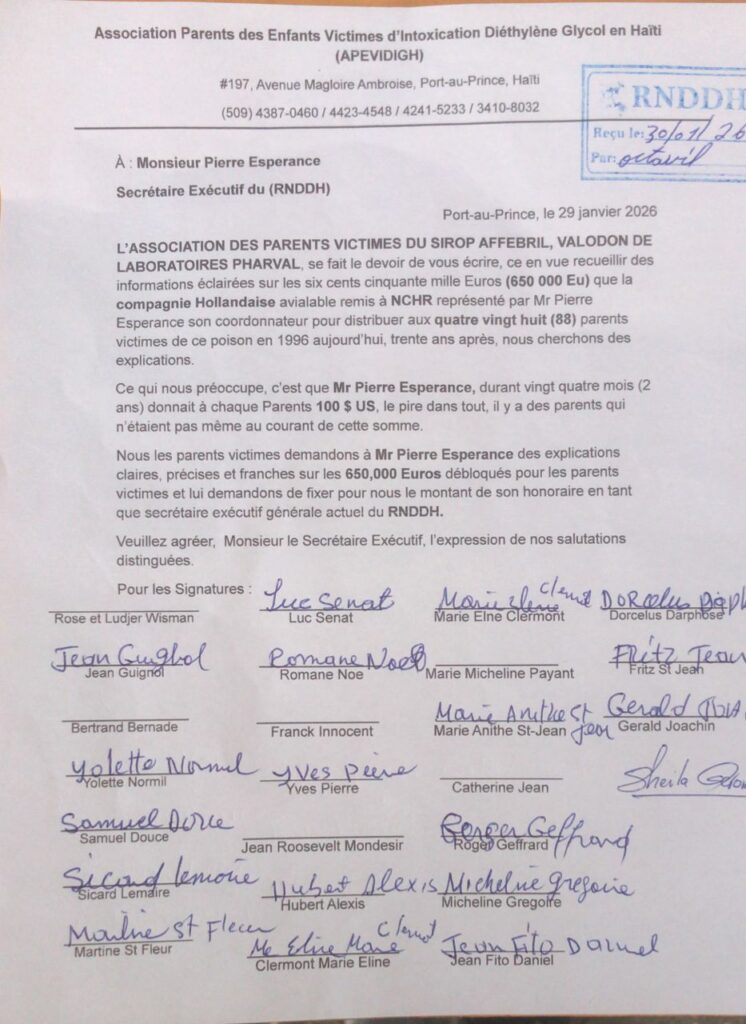 Association Parents des Enfants Victimes d'Intoxication Diéthylène Glycol en Haïti
(APEVIDIGH)
#197, Avenue Magloire Ambroise, Port-au-Prince, Haïti
(509) 4387-0460 / 4423-4548 / 4241-5233 / 3410-8032
RNDDH
Reçu le: 30/01/26
Par: octavil
À : Monsieur Pierre Esperance
Secrétaire Exécutif du (RNDDH)
Port-au-Prince, le 29 janvier 2026
L'ASSOCIATION DES PARENTS VICTIMES DU SIROP AFFEBRIL, VALODON DE
LABORATOIRES PHARVAL, se fait le devoir de vous écrire, ce en vue recueillir des
informations éclairées sur les six cents cinquante mille Euros (650 000 Eu) que la
compagnie Hollandaise avialable remis à NCHR représenté par Mr Pierre
Esperance son coordonnateur pour distribuer aux quatre vingt huit (88) parents
victimes de ce poison en 1996 aujourd'hui, trente ans après, nous cherchons des
explications.
Ce qui nous préoccupe, c'est que Mr Pierre Esperance, durant vingt quatre mois (2
ans) donnait à chaque Parents 100 $ US, le pire dans tout, il y a des parents qui
n'étaient pas même au courant de cette somme.
Nous les parents victimes demandons à Mr Pierre Esperance des explications
claires, précises et franches sur les 650,000 Euros débloqués pour les parents
victimes et lui demandons de fixer pour nous le montant de son honoraire en tant
que secrétaire exécutif générale actuel du RNDDH.
Veuillez agréer, Monsieur le Secrétaire Exécutif, l'expression de nos salutations
distinguées.
Pour les Signatures :
Luc Senat Marie Clermont Dorcelus
Rose et Ludjer Wisman Luc Senat Marie Elne Clermont Dorcelus Darphose
Jean Guignol Romane Noe Fritz Jean
Jean Guignol Romane Noe Marie Micheline Payant Fritz St Jean
Marie Anithe St Jean Gerald
Bertrand Bernade Franck Innocent Marie Anithe St-Jean Gerald Joachin
Yolette Normil Yves Pierre Sheila
Yolette Normil Yves Pierre Catherine Jean
Samuel Douce Geffrard
Samuel Douce Jean Roosevelt Mondesir Roger Geffrard
Sicard Lemaire Hubert Alexis Micheline Gregoire
Sicard Lemaire Hubert Alexis Micheline Gregoire
St Fleur Me Eline Marie Clermont Jean Fito Daniel
Martine St Fleur Clermont Marie Eline Jean Fito Daniel